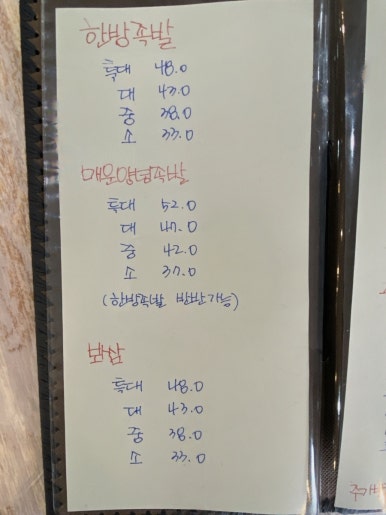 한방족발
특대 48.0
대 43.0
중 38.0
소 33.0
매운양념족발
특대 52.0
대 47.0
중 42.0
소 37.0
(한방족발 반반가능)
보쌈
특대 48.0
대 43.0
중 38.0
소 33.0